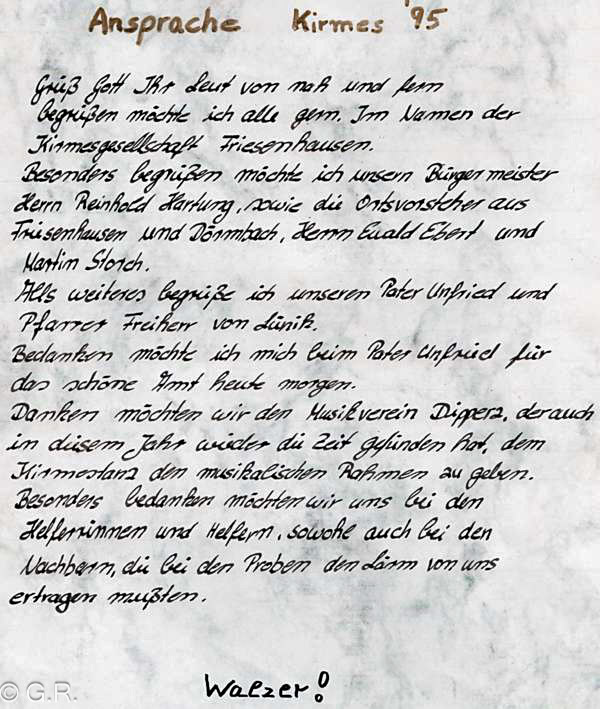 Ansprache Kirmes '95
Grüß Gott Ihr Leut von nah und fern
begrüßen möchte ich alle gern. Im Namen der
Kirmesgesellschaft Friesenhausen.
Besonders begrüßen möchte ich unsern Bürgermeister
Herrn Reinhold Hartung, sowie die Ortsvorsteher aus
Friesenhausen und Dörmbach, Herrn Ewald Ebert und
Martin Storch.
Als weiteres begrüße ich unseren Pater Unfried und
Pfarrer Freiherr von Lünik.
Bedanken möchte ich mich beim Pater Unfried für
das schöne Amt heute morgen.
Danken möchten wir den Musikverein Dipperz, der auch
in diesem Jahr wieder die Zeit gefunden hat, dem
Kirmestanz den musikalischen Rahmen zu geben.
Besonders bedanken möchten wir uns bei den
Helferrinnen und Helfern, sowohl auch bei den
Nachbarn, die bei den Proben den Lärm von uns
ertragen mußten.
Walzer!
© G.R.